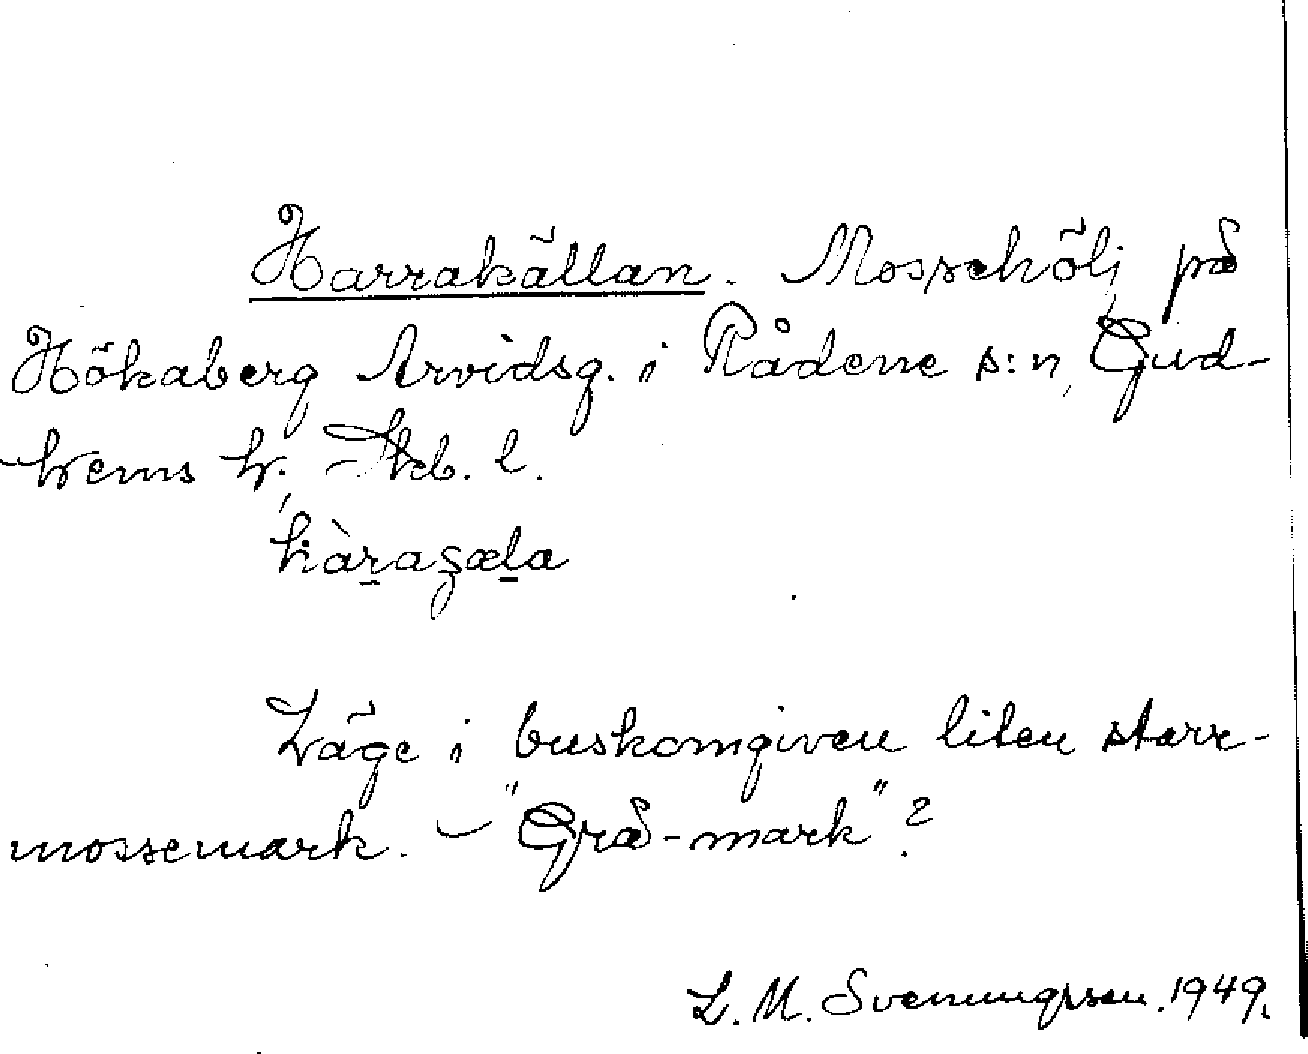 Harrakällan. Mossehölj på
Hökaberg Arvidsg. i Rådene s:n, Gud-
hems h., Skb. l.
hàr̠aʒæl̠a
Läge i buskomgiven liten starr-
mossemark. – "Grå-mark"?
L. M. Svenungsson. 1949.